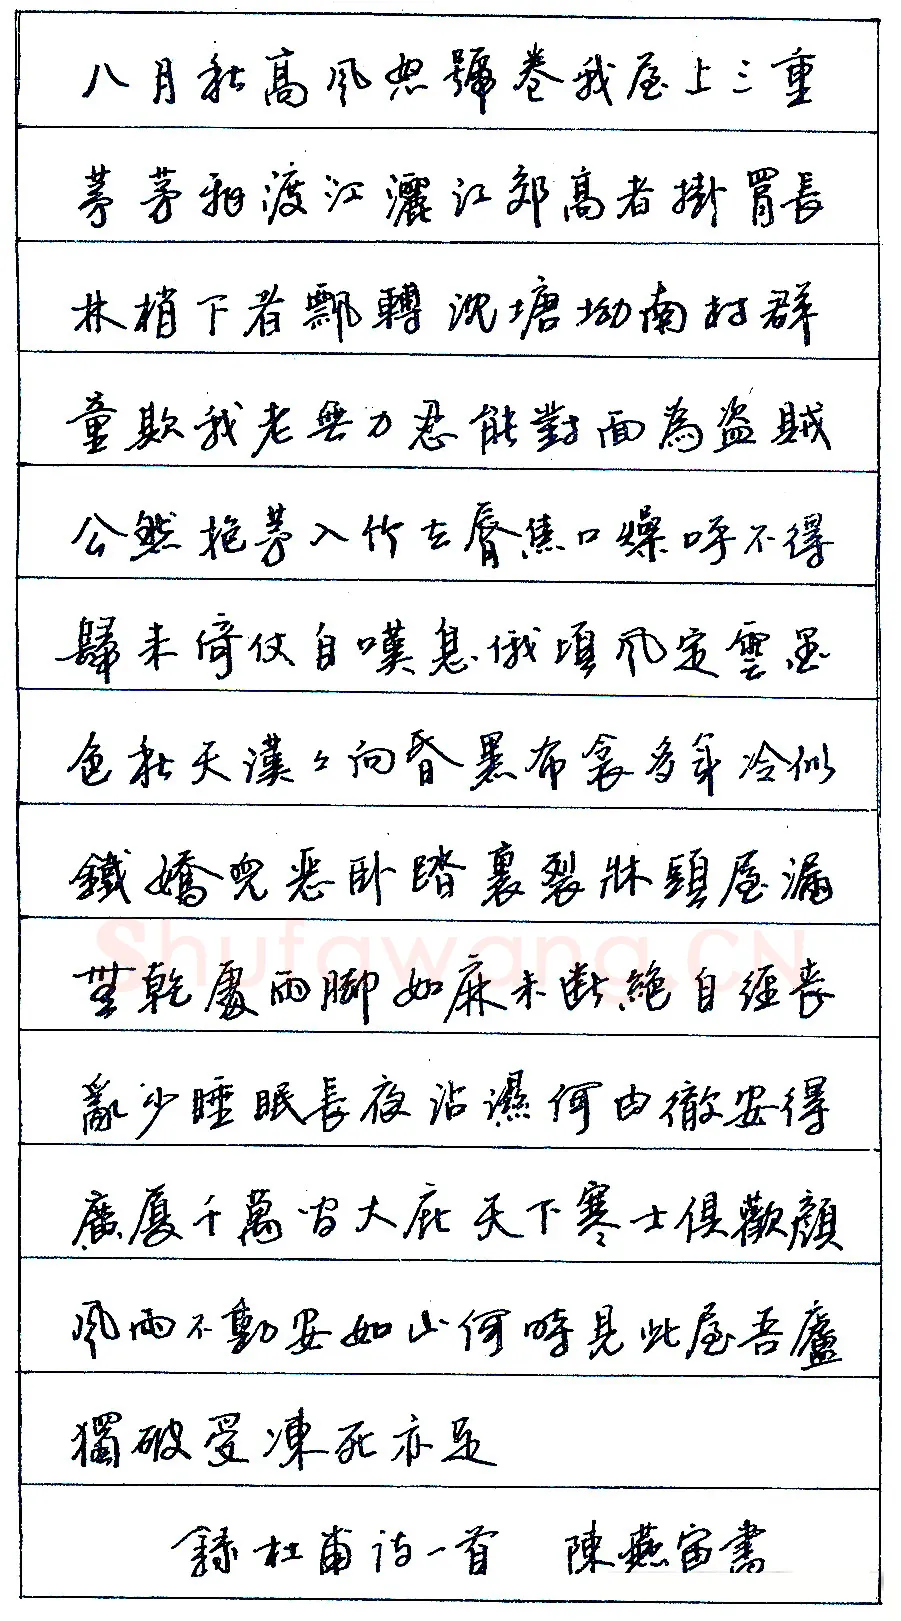 八月秋高風怒號卷我屋上三重
茅茅飛渡江灑江郊高者掛罥長
林梢下者飄轉沈塘坳南村群
童欺我老無力忍能對面為盜賊
公然抱茅入竹去脣焦口燥呼不得
歸來倚仗自嘆息俄頃風定雲墨
色秋天漠々向昏黑布衾多年冷似
鐵嬌兒惡卧踏裏裂牀頭屋漏
無乾處雨脚如麻未斷絕自經喪
亂少睡眠長夜沾濕何由徹安得
廣厦千萬間大庇天下寒士俱歡顏
風雨不動安如山何時見此屋吾廬
獨破受凍死亦足
錄杜甫詩一首 陳燕宙書
Shufawang.CN